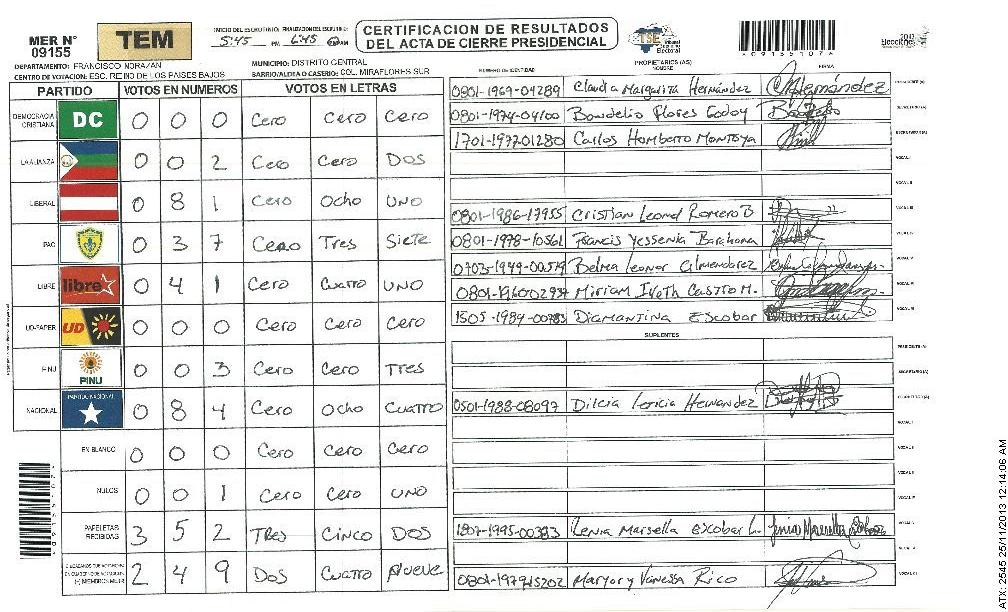 MER N° 09155
TEM
INICIO DEL ESCRUTINIO: 5:45 PM FINALIZACION DEL ESCRUTINIO: 6:45
CERTIFICACION DE RESULTADOS DEL ACTA DE CIERRE PRESIDENCIAL
TSE Tribunal Supremo Electoral
09155107
2013
DEPARTAMENTO: FRANCISCO MORAZAN
MUNICIPIO: DISTRITO CENTRAL
CENTRO DE VOTACION: ESC. REINO DE LOS PAISES BAJOS
BARRIO/ALDEA O CASERIO: COL. MIRAFLORES SUR
PARTIDO VOTOS EN NUMEROS VOTOS EN LETRAS
DEMOCRACIA CRISTIANA DC 0 0 0 Cero Cero Cero
LA ALIANZA 0 0 2 Cero Cero Dos
LIBERAL 0 8 1 Cero Ocho Uno
PAC 0 3 7 Cero Tres Siete
LIBRE libre 0 4 1 Cero Cuatro Uno
UD-FAPER UD 0 0 0 Cero Cero Cero
PINU PINU 0 0 3 Cero Cero Tres
NACIONAL PARTIDO NACIONAL 0 8 4 Cero Ocho Cuatro
EN BLANCO 0 0 0 Cero Cero Cero
NULOS 0 0 1 Cero Cero Uno
PAPELETAS RECIBIDAS 3 5 2 Tres Cinco Dos
2 4 9 Dos Cuatro Nueve
NUMERO DE IDENTIDAD PROPIETARIOS (AS) NOMBRE FIRMA
0801-1969-04289 Claudia Margarita Hernández
0801-1974-04100 Bondelio Flores Godoy
1701-197201280 Carlos Homberto Montoya
0801-1986-17955 Cristian Leonel Romero B
0801-1978-10561 Francis Yessenia Barahona
0703-1949-00519 Belma Leonor Almendarez
0801-196002937 Miriam Iveth Castro M.
1505-1984-00783 Diamantina Escobar
SUPLENTES
0501-1988-08097 Dilcia Leticia Hernandez
1807-1995-00383 Lenia Marsella Escobar L.
0801-197915202 Maryory Vanessa Rico
ATX: 2545 25/11/2013 12:14:06 AM